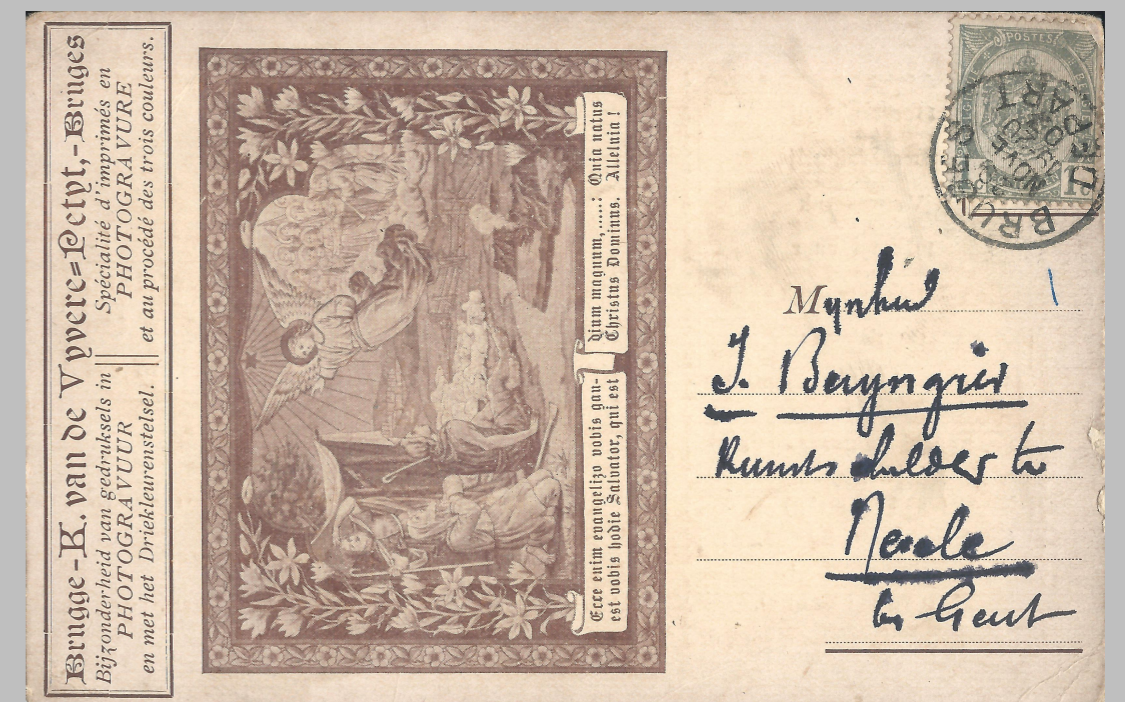 Brugge-K. van de Vyvere=Petyt,-Bruges
Bijzonderheid van gedruksels in
PHOTOGRAVUUR
en met het Driekleurenstelsel.
Spécialité d'imprimés en
PHOTOGRAVURE
et au procédé des trois couleurs.
Ecce enim evangelizo vobis gau-
est vobis hodie Salvator, qui est
dium magnum,.....: Quia natus
Christus Dominus. Alleluia !
POSTES
BRUGES
NOVE
DEPART
1
Mynheer
J.
Kunstschilder te
by Gent